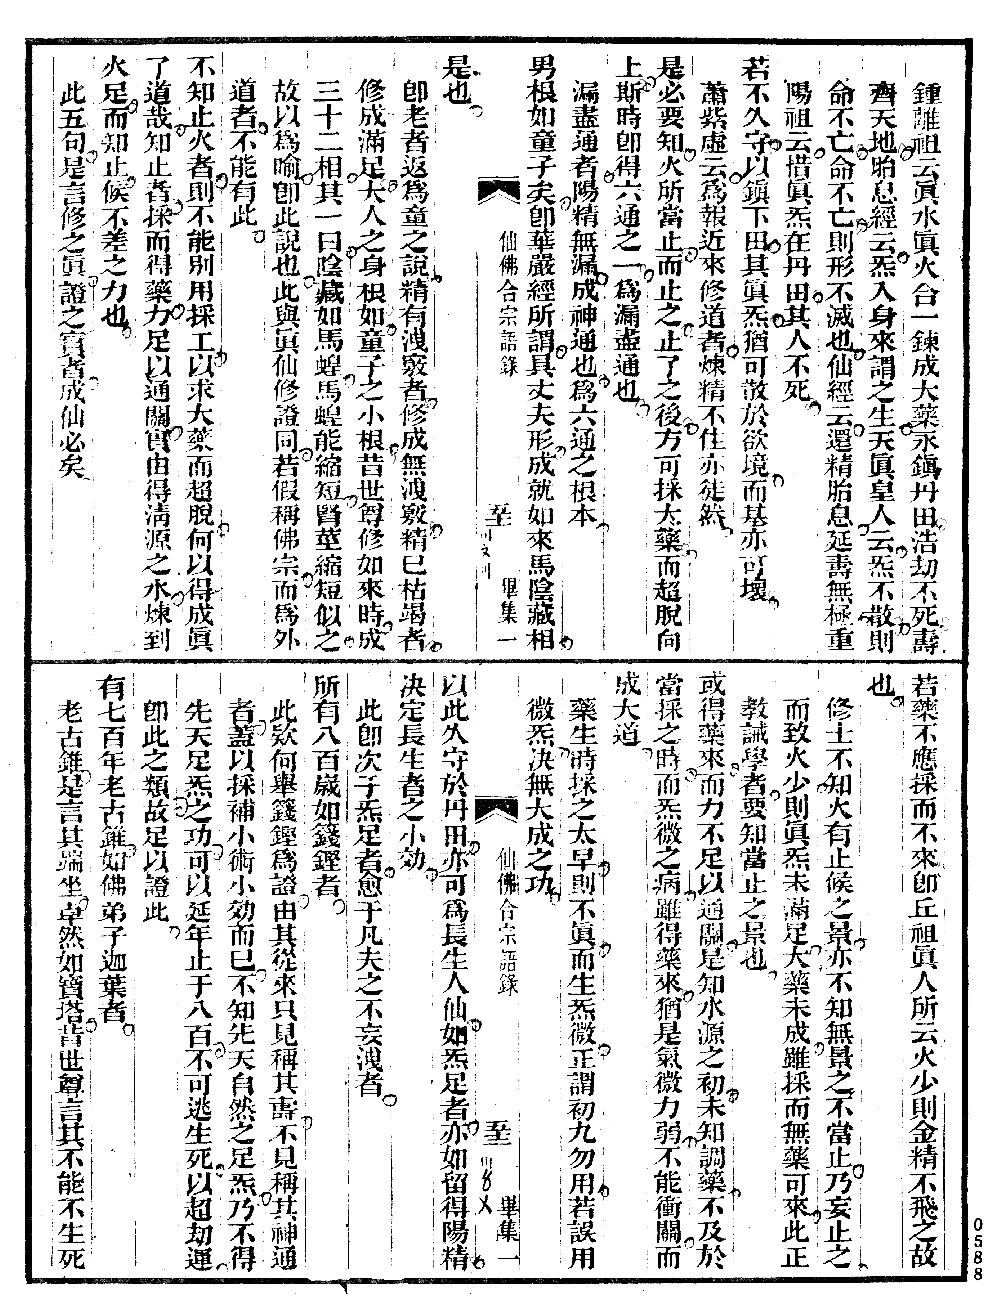 鍾離祖云眞水眞火合一鍊成大藥永鎭丹田浩劫不死壽
齊天地胎息經云炁入身來謂之生天眞皇人云炁不散則
命不亡命不亡則形不滅也仙經云還精胎息延壽無極重
陽祖云惜眞炁在丹田其人不死
若不久守以鎭下田其眞炁猶可散於欲境而基亦可壞
蕭紫虛云爲報近來修道者煉精不住亦徒然
是必要知火所當止而止之止了之後方可採大藥而超脫向
上斯時卽得六通之一爲漏盡通也
漏盡通者陽精無漏成神通也爲六通之根本
男根如童子矣卽華嚴經所謂具丈夫形成就如來馬陰藏相
仙佛合宗語錄
畢集一
是也
卽老者返爲童之說精有洩竅者修成無洩竅精已枯竭者
修成滿足大人之身根如童子之小根昔世尊修如來時成
三十二相其一曰陰藏如馬蝗馬蝗能縮短腎莖縮短似之
故以爲喻卽此說也此與眞仙修證同若假稱佛宗而爲外
道者不能有此
不知止火者則不能別用採工以求大藥而超脫何以得成眞
了道哉知止者採而得藥力足以通關實由得淸源之水煉到
火足而知止候不差之力也
此五句是言修之眞證之實者成仙必矣
若藥不應採而不來卽丘祖眞人所云火少則金精不飛之故
也
修士不知火有止候之景亦不知無景之不當止乃妄止之
而致火少則眞炁未滿足大藥未成雖採而無藥可來此正
教誡學者要知當止之景也
或得藥來而力不足以通關是知水源之初未知調藥不及於
當採之時而炁微之病雖得藥來猶是氣微力弱不能衝關而
成大道
藥生時採之太早則不眞而生炁微正謂初九勿用若誤用
微炁决無大成之功
仙佛合宗語錄
畢集一
以此久守於丹田亦可爲長生人仙如炁足者亦如留得陽精
决定長生者之小効
此卽次于炁足者愈于凡夫之不妄洩者
所有八百歲如籛鏗者
此欵何舉籛鏗爲證由其從來只見稱其壽不見稱其神通
者蓋以採補小術小効而已不知先天自然之足炁乃不得
先天足炁之功可以延年止于八百不可逃生死以超劫運
卽此之類故足以證此
有七百年老古錐如佛弟子迦葉者
老古錐是言其端坐卓然如寶塔昔世尊言其不能不生死
0588